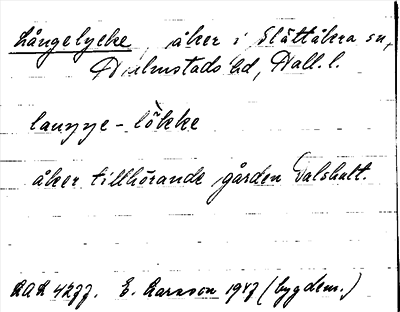 Långelycke, åker i Slättåkra sn,
Halmstads hd, Hall. l.
laŋŋe-lökke
åker tillhörande gården Dalshult.
E. Larsson 1947 (bygdem.)